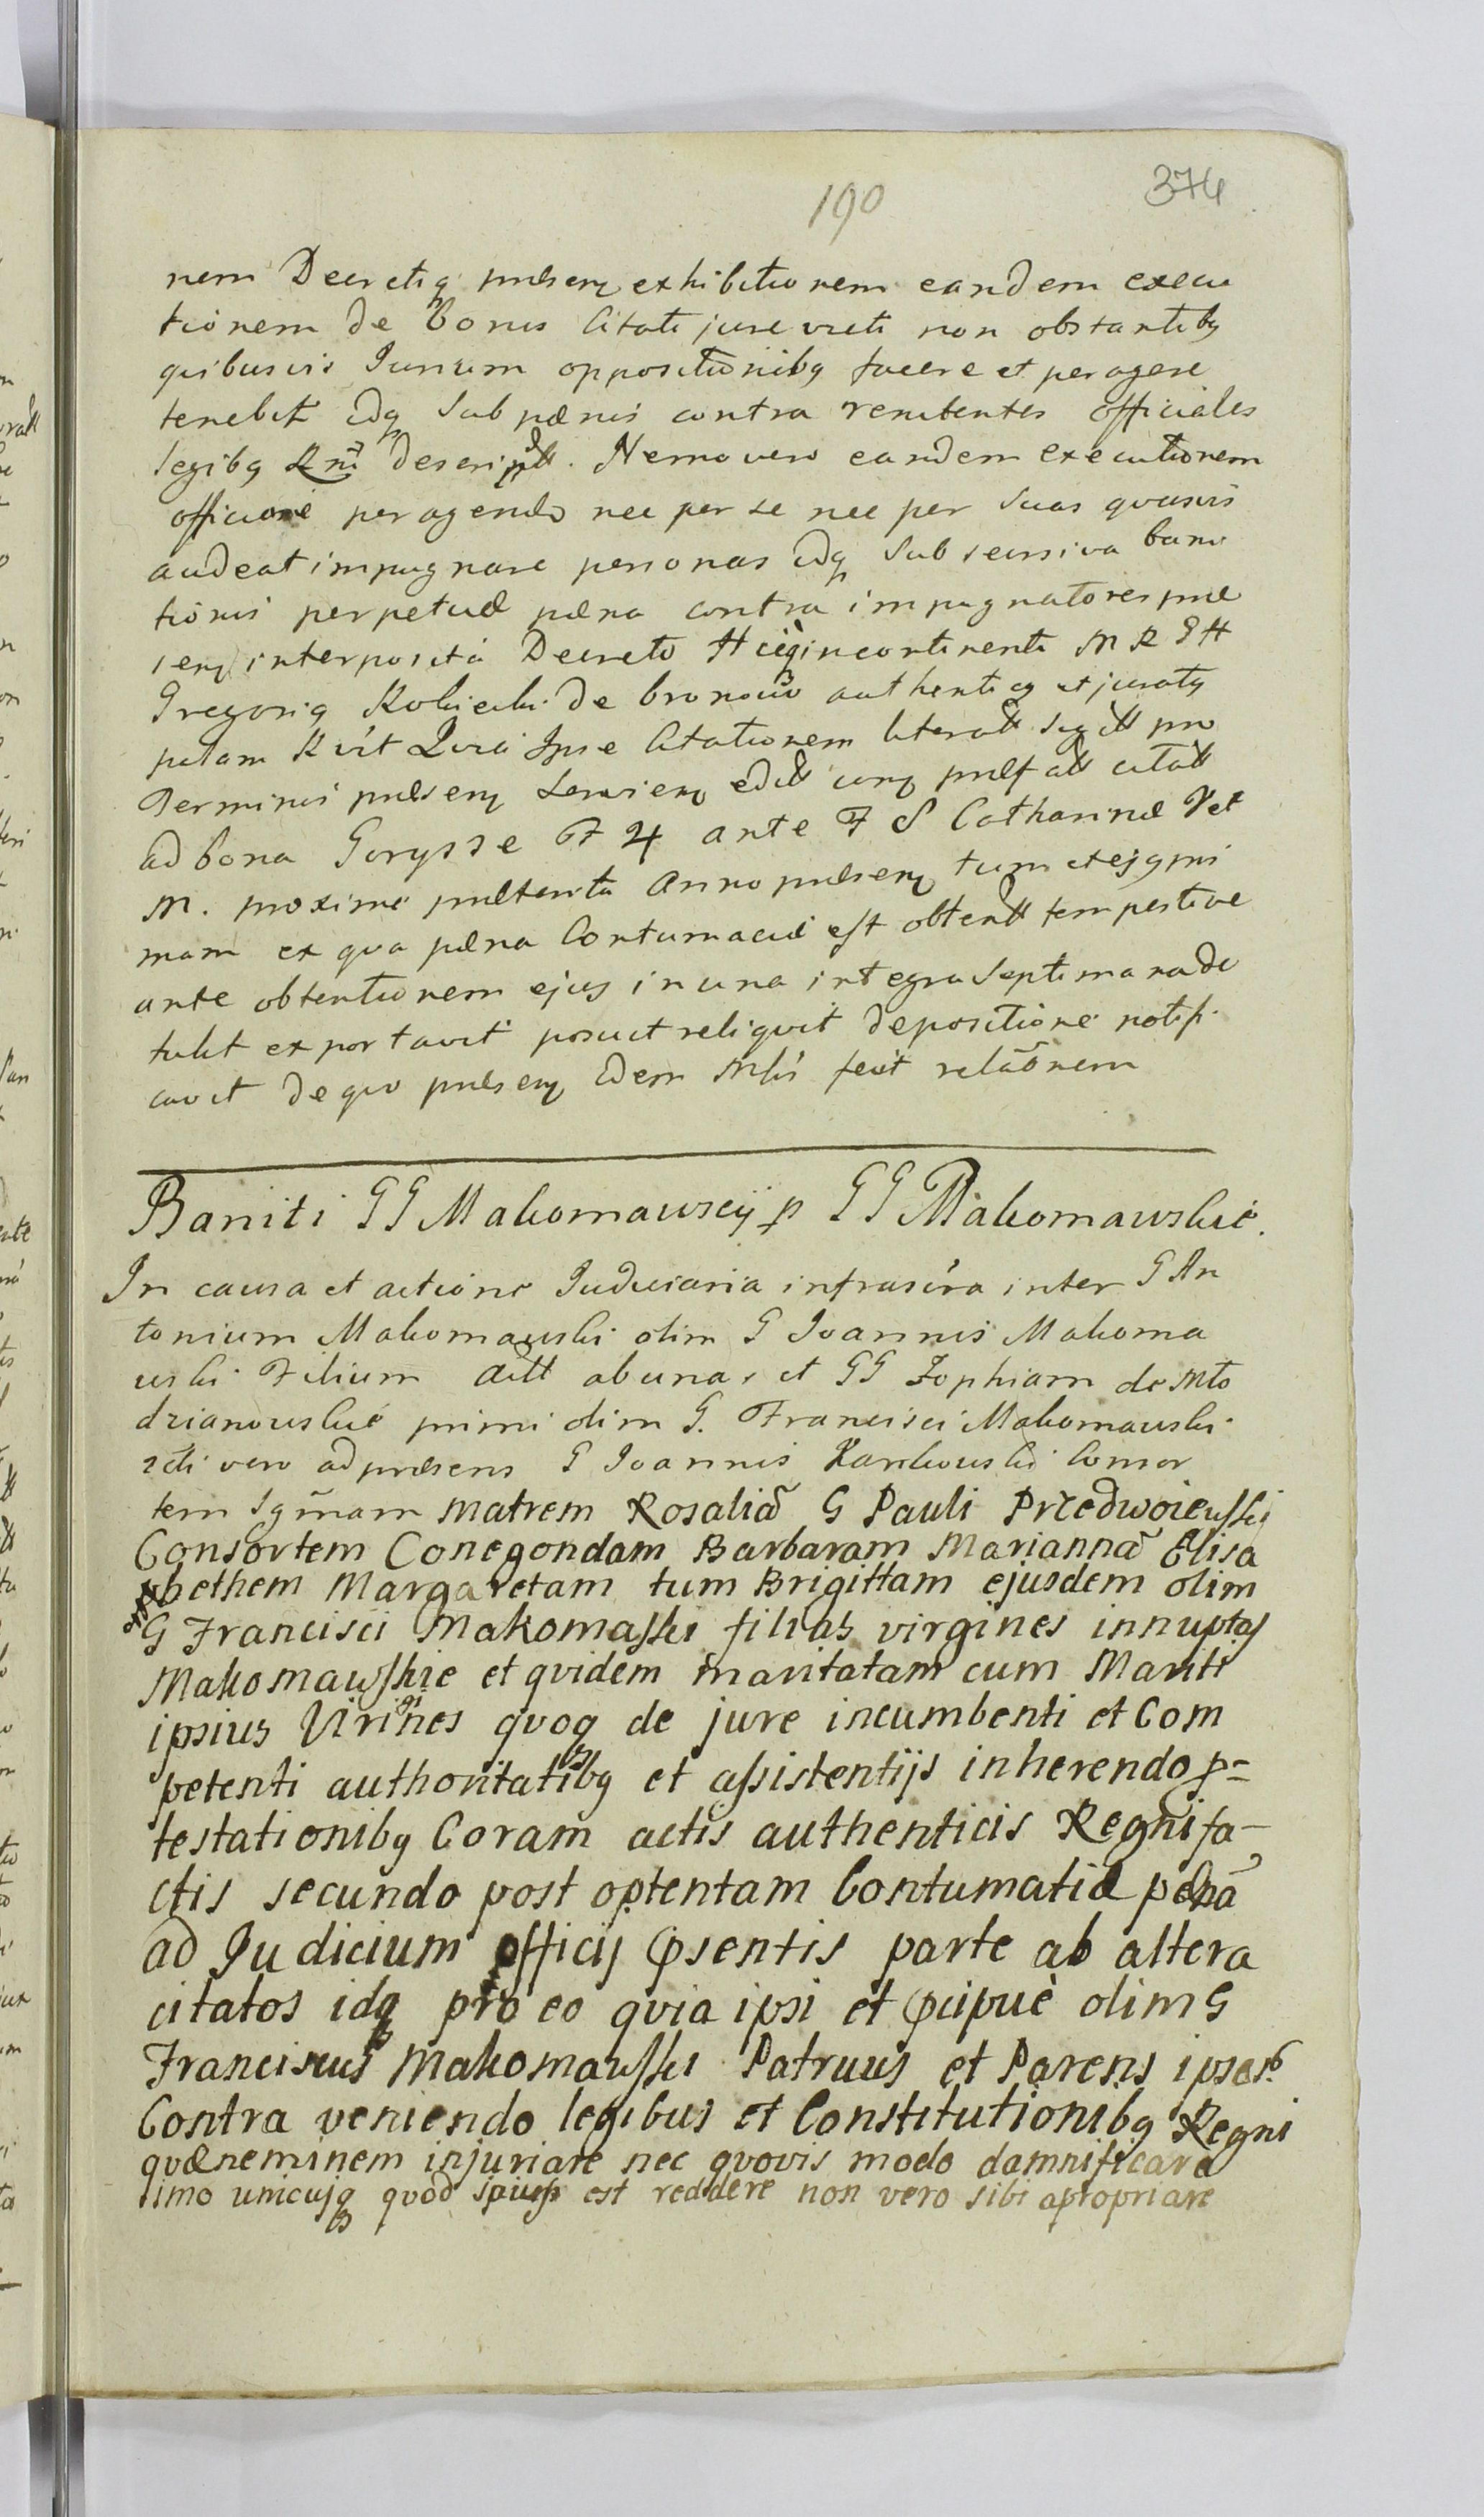 190
374
nem Decretiq praesenq exhibitionem eandem execu
tionem de bonis Citati jure victi non obstantibq
quibusvis Jurium oppositionibq facere et peragere
tenebit idq sub paenis contra renitentes officiales
legibq Rni descriptt. Nemo vero eandem executionem
officiose peragendo nec per se nec per suas quasvis
audeat impugnare personas idq sub recursiva bani
tionis perpetuae paena contra impugnatores prae
senq interposita Decreto Hicq incontinenti M R G H
Gregoriq Kobiecki de bronowo authenticq et juratq
palam Rvit Quia Ipse Citationem literatt sigitt pro
Terminis praesenq servienq editt cumq praefatt citatt
ad bona Gorysse F 4 ante F S Catharinae V et
M. proxime praeterita Anno praesenq tum et ejq pri
mam ex qua paena Contumaciae est obtentt tempestive
ante obtentionem ejus in una integra septimana de
tulit exportavit posuit reliquit depositione notifi
cavit de quo praesenq idem Mlis fecit relaõnem
Baniti GG Makomawscij p GG Makomawskie.
In causa et actione Judiciaria infrascra inter G An
tonium Makomawski olim G Joannis Makoma
wski Filium Actt ab una, et GG Zophiam de Mło
dzianowskie primi olim G. Francisci Makomawski
2di vero ad praesens G Joannis Karkowski Conсor
tem Igmam Matrem Rosaliã G Pauli Przedwoiewski
Consortem Conegondam Barbaram Mariannã Elisa
bethem Margaretam tum Brigittam ejusdem olim
G Francisci Makomaski filias virgines innuptas
Makomawskie et quidem maritatam cum Mariti
ipsius Virines quoq de jure incumbenti et Com
petenti authoritatibq et assistentijs inherendo p=
testationibq Coram actis authenticis Regni fa-
ctis secundo post optentam Contumatiae penã
ad Judicium officij psentis parte ab altera
citatos idq pro eo quia ipsi et pcipue olim G
Franciscus Makomawski Patruus et Parens ipsar
Contra veniendo legibus et Constitutionibq Regni
quae neminem injuriare nec quovis modo damnificare
imo unicujq quod suum est reddere non vero sibi apropriare